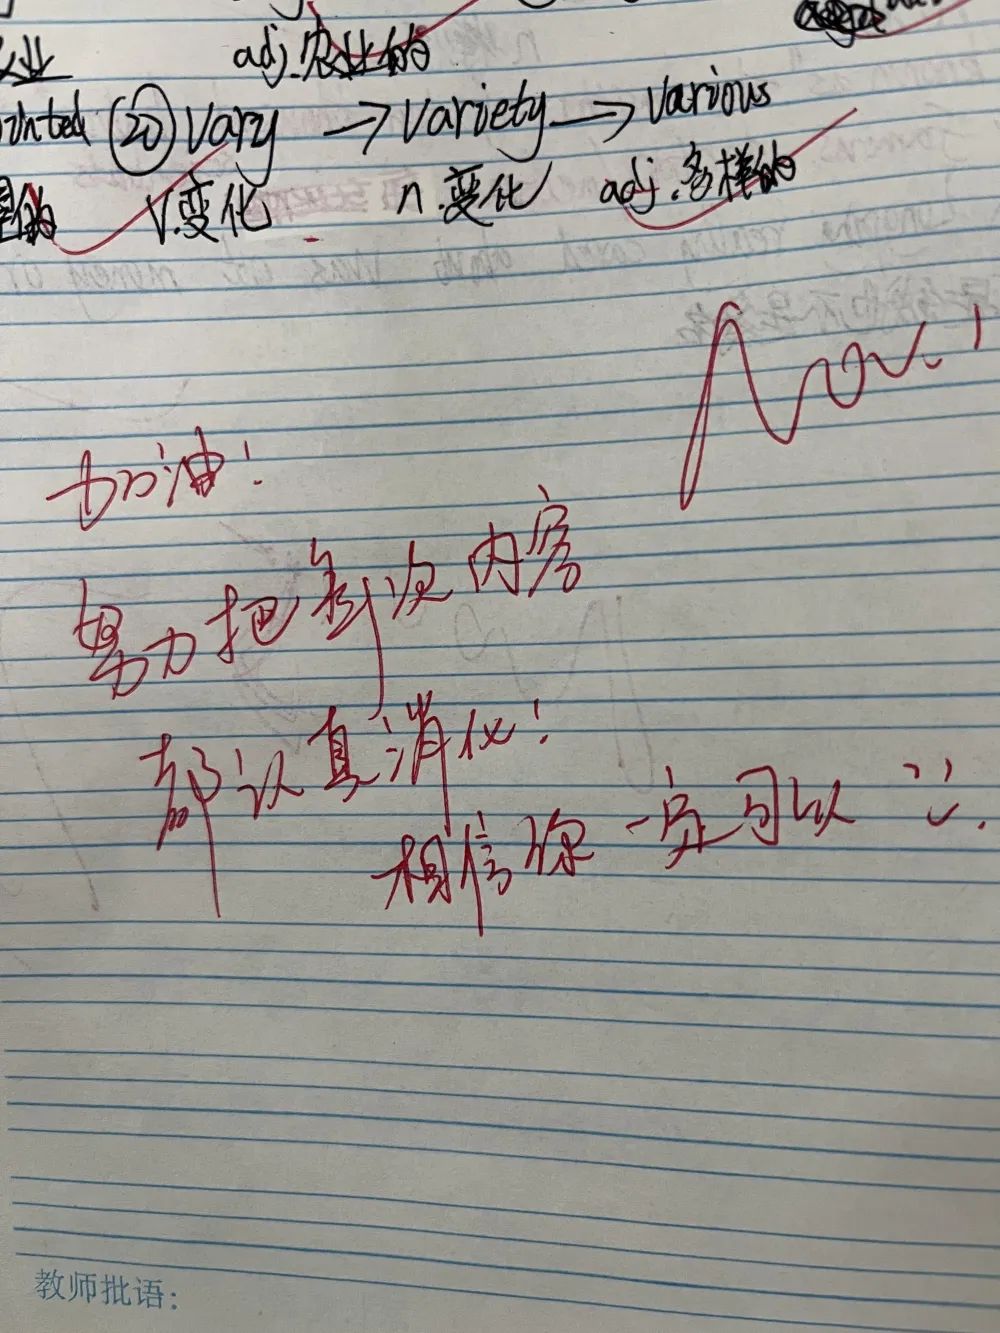 业 adj.农业的
inted ⑳ vary → variety → various
v.变化 n.变化 adj.多样的
Nov.
加油!
努力把每次内容
都认真消化!
相信你一定可以
教师批语: